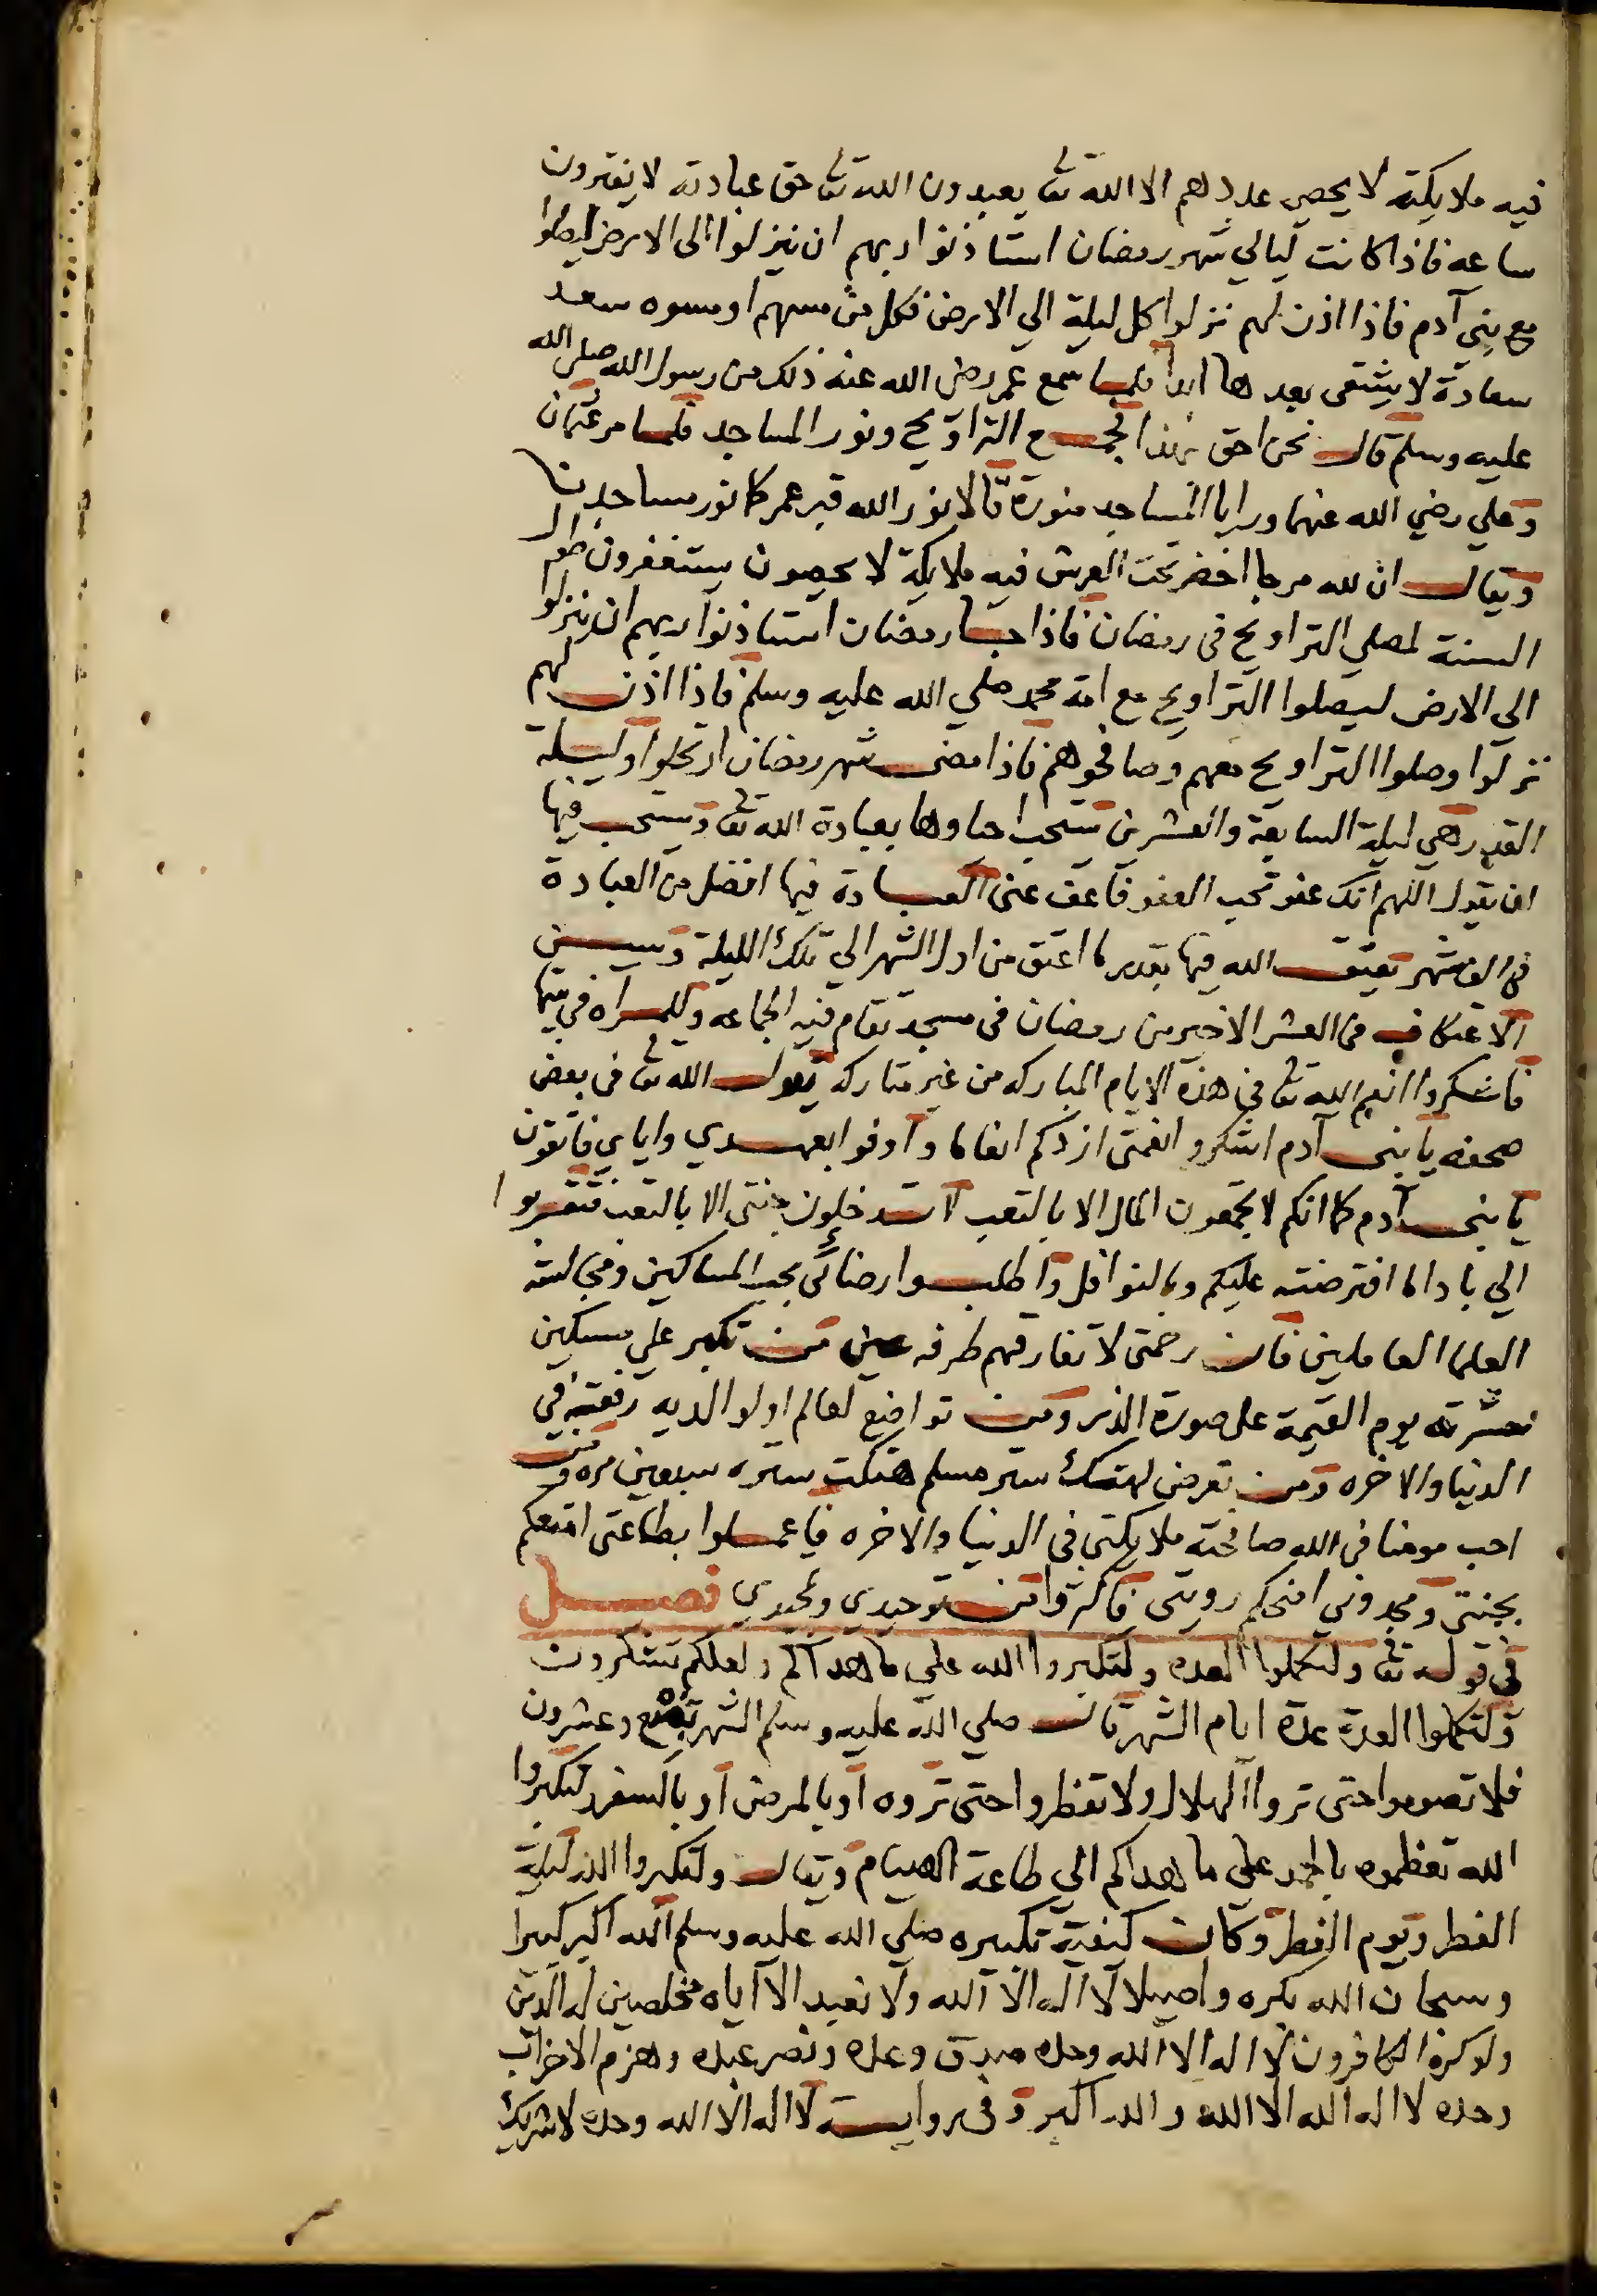 فيه ملايكة لا يحصي عددهم الا الله تعا يعبدون الله تعا حق عبادته لا يفترون
ساعه فاذا كانت ليالي شهر رمضان استاذنوا ربهم ان ينزلوا الى الارض ليصلوا
مع بني آدم فاذا اذن لهم نزلوا كل ليلة الي الارض فكل من مسهم او مسوه سعد
سعادة لا يشقى بعدها ابدا فلما سمع عمر رضي الله عنه ذلك من رسول الله صلى الله
عليه وسلم قال نحن احق بهذا فجمع التراويح ونور المساجد فلما مر عثمان
وعلي رضي الله عنهما ورايا المساجد منورة قالا نور الله قبر عمر كما نور مساجدنا
ويقال ان لله مرجا اخضر تحت العرش فيه ملايكة لا يحصون يستغفرون طول
السنة لمصلي التراويح فى رمضان فاذا جا رمضان استاذنوا ربهم ان ينزلوا
الى الارض ليصلوا التراويح مع امة محمد صلي الله عليه وسلم فاذا اذن لهم
نزلوا وصلوا التراويح معهم وصافحوهم فاذا مضى شهر رمضان ارتحلوا وليلة
القدر هي ليلة السابعة والعشرين يستحب احياوها بعبادة الله تعا ويستحب فيها
ان يقول اللهم انك عفو تحب العفو فاعف عني العبادة فيها افضل من العبادة
في الف شهر يعتق الله فيها بقدر ما اعتق من اول الشهر الي تلك الليلة ويسن
الاعتكاف في العشر الاخير من رمضان فى مسجد تقام فيه الجماعه وللمراه في بيتها
فاشكروا انعم الله تعا في هذه الايام المباركه من غير متاركه يقول الله تعا فى بعض
صحفه يا بني آدم اشكروا نعمتى ازدكم انعاما واوفوا بعهدي واياي فاتقون
يا بني آدم كما انكم لا تجمعون المال الا بالتعب لا تدخلون جنتى الا بالتعب فتقربوا
الي بادا ما افترضته عليكم وبالنوافل واطلبوا رضائي بحب المساكين ومجالسة
العلما العاملين فان رحمتى لا تفارقهم طرفه عين من تكبر على مسكين
حشرته يوم القيمة على صورة الذر ومن تواضع لعالم او لوالديه رفعته في
الدنيا والاخره ومن تعرض لهتك ستر مسلم هتكت ستره سبعين مره ومن
احب مومنا فى الله صافحته ملايكتي فى الدنيا والاخره فاعملوا بطاعتى امتعكم
بجنتى ومجدوني امنحكم رويتى فاكثروا من توحيدي وتمجيدي فصل
فى قوله تعا ولتكملوا العده ولتكبروا الله علي ما هداكم ولعلكم تشكرون
ولتكملوا العدة عدة ايام الشهر قال صلي الله عليه وسلم الشهر تسع وعشرون
فلا تصوموا حتى تروا الهلال ولا تفطروا حتى تروه او بالمرض او بالسفر ولتكبروا
الله تعظموه بالحمد علي ما هداكم الي طاعة الصيام ويقال ولتكبروا الله ليلة
الفطر ويوم الفطر وكان كيفية تكبيره صلي الله عليه وسلم الله اكبر كبيرا
وسبحان الله بكره واصيلا لا اله الا الله ولا نعبد الا اياه مخلصين له الدين
ولو كره الكافرون لا اله الا الله وحده صدق وعده ونصر عبده وهزم الاحزاب
وحده لا اله الله الا الله والله اكبر وفى رواية لا اله الا الله وحده لا شريك